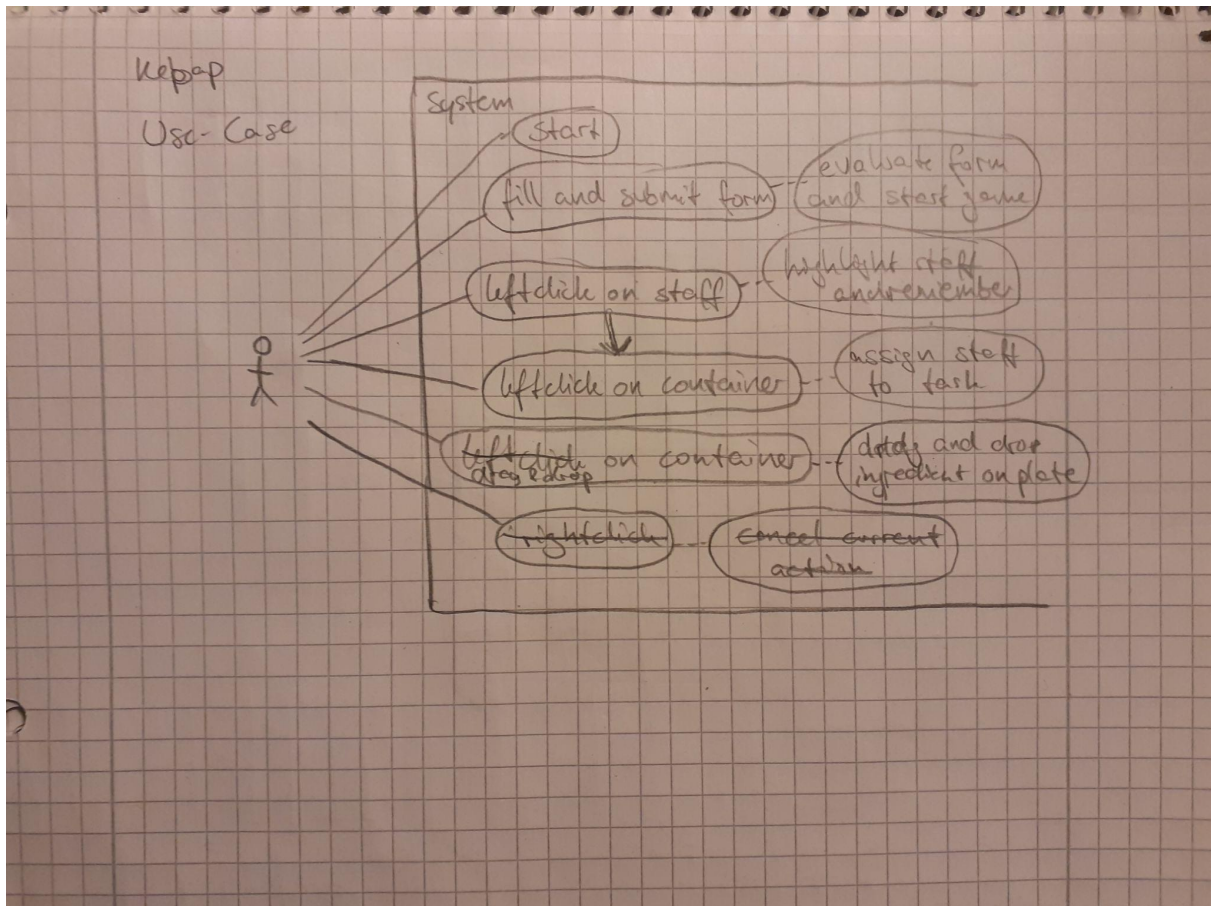 Kebap
Use-Case
System
start
fill and submit form
evaluate form
and start game
leftclick on staff
highlight staff
and remember
leftclick on container
assign staff
to task
leftclick on container
drag & drop
and drop
ingredient on plate
rightclick
cancel current
action